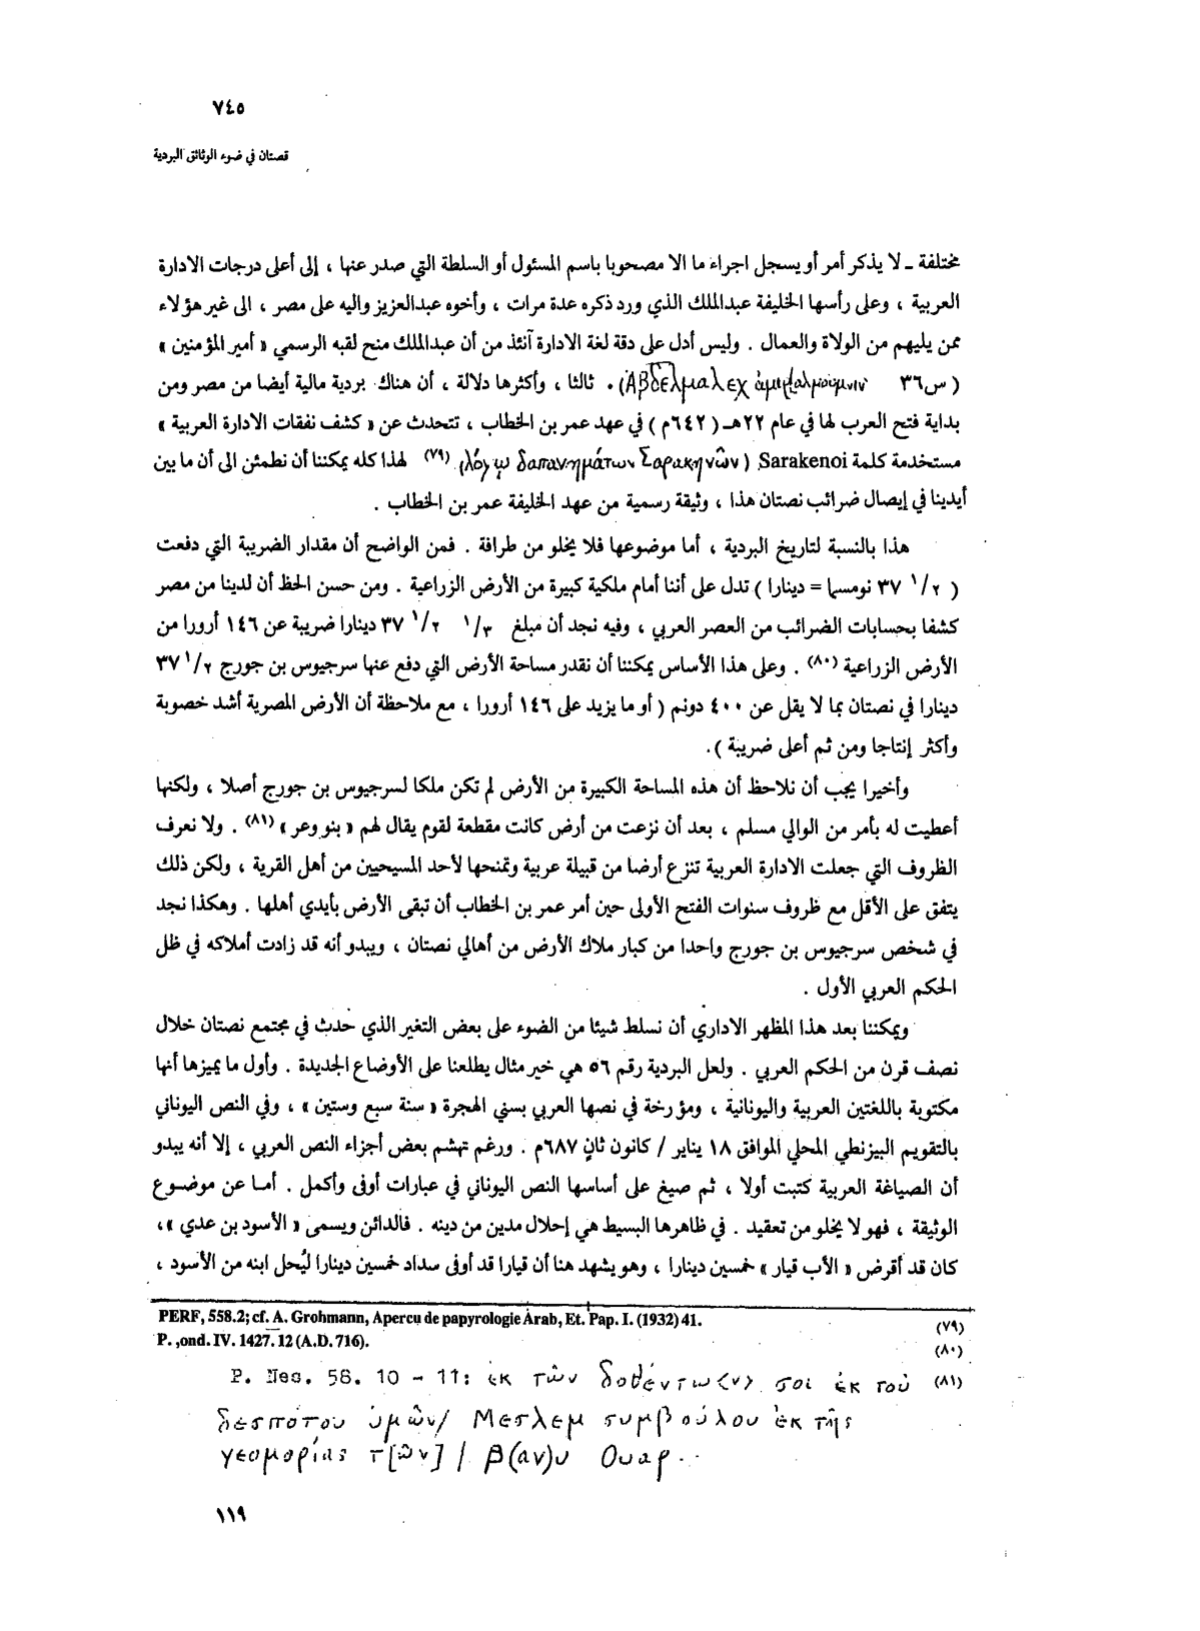 ٧٤٥
قصتان في ضوء الوثائق البردية
مختلفة ـ لا يذكر أمر أو يسجل اجراء ما الا مصحوبا باسم المسئول أو السلطة التي صدر عنها ، إلى أعلى درجات الادارة
العربية ، وعلى رأسها الخليفة عبدالملك الذي ورد ذكره عدة مرات ، وأخوه عبدالعزيز واليه على مصر ، الى غير هؤلاء
ممن يليهم من الولاة والعمال . وليس أدل على دقة لغة الادارة آنئذ من أن عبدالملك منح لقبه الرسمي « أمير المؤمنين »
( س٣٦ Ἀβδελμαλεχ ἀμιραλμουμνιν) . ثالثا ، وأكثرها دلالة ، أن هناك بردية مالية أيضا من مصر ومن
بداية فتح العرب لها في عام ٢٢هـ ( ٦٤٢م ) في عهد عمر بن الخطاب ، تتحدث عن « كشف نفقات الادارة العربية »
مستخدمة كلمة Sarakenoi ( λόγῳ δαπανημάτων Σαρακηνῶν) (٧٩) لهذا كله يمكننا أن نطمئن الى أن ما بين
أيدينا في إيصال ضرائب نصتان هذا ، وثيقة رسمية من عهد الخليفة عمر بن الخطاب .
هذا بالنسبة لتاريخ البردية ، أما موضوعها فلا يخلو من طرافة . فمن الواضح أن مقدار الضريبة التي دفعت
( ٣٧ ١/٢ نومسما = دينارا ) تدل على أننا أمام ملكية كبيرة من الأرض الزراعية . ومن حسن الحظ أن لدينا من مصر
كشفا بحسابات الضرائب من العصر العربي ، وفيه نجد أن مبلغ ١/٣ ٣٧ ١/٢ دينارا ضريبة عن ١٤٦ أرورا من
الأرض الزراعية (٨٠) . وعلى هذا الأساس يمكننا أن نقدر مساحة الأرض التي دفع عنها سرجيوس بن جورج ٣٧ ١/٢
دينارا في نصتان بما لا يقل عن ٤٠٠ دونم ( أو ما يزيد على ١٤٦ أرورا ، مع ملاحظة أن الأرض المصرية أشد خصوبة
وأكثر إنتاجا ومن ثم أعلى ضريبة ).
وأخيرا يجب أن نلاحظ أن هذه المساحة الكبيرة من الأرض لم تكن ملكا لسرجيوس بن جورج أصلا ، ولكنها
أعطيت له بأمر من الوالي مسلم ، بعد أن نزعت من أرض كانت مقطعة لقوم يقال لهم « بنو وعر » (٨١) . ولا نعرف
الظروف التي جعلت الادارة العربية تنزع أرضا من قبيلة عربية وتمنحها لأحد المسيحيين من أهل القرية ، ولكن ذلك
يتفق على الأقل مع ظروف سنوات الفتح الأولى حين أمر عمر بن الخطاب أن تبقى الأرض بأيدي أهلها . وهكذا نجد
في شخص سرجيوس بن جورج واحدا من كبار ملاك الأرض من أهالي نصتان ، ويبدو أنه قد زادت أملاكه في ظل
الحكم العربي الأول .
ويمكننا بعد هذا المظهر الاداري أن نسلط شيئا من الضوء على بعض التغير الذي حدث في مجتمع نصتان خلال
نصف قرن من الحكم العربي . ولعل البردية رقم ٥٦ هي خير مثال يطلعنا على الأوضاع الجديدة . وأول ما يميزها أنها
مكتوبة باللغتين العربية واليونانية ، ومؤرخة في نصها العربي بسني الهجرة « سنة سبع وستين » ، وفي النص اليوناني
بالتقويم البيزنطي المحلي الموافق ١٨ يناير / كانون ثانٍ ٦٨٧م . ورغم تهشم بعض أجزاء النص العربي ، إلا أنه يبدو
أن الصياغة العربية كتبت أولا ، ثم صيغ على أساسها النص اليوناني في عبارات أوفى وأكمل . أما عن موضوع
الوثيقة ، فهو لا يخلو من تعقيد . في ظاهرها البسيط هي إحلال مدين من دينه . فالدائن ويسمى « الأسود بن عدي » ،
كان قد أقرض « الأب قيار » خمسين دينارا ، وهو يشهد هنا أن قيارا قد أوفى سداد خمسين دينارا ليُحل ابنه من الأسود ،
PERF, 558.2; cf. A. Grohmann, Apercu de papyrologie Arab, Et. Pap. I. (1932) 41. (٧٩)
P. ,ond. IV. 1427. 12 (A.D. 716). (٨٠)
P. Nes. 58. 10 - 11: ἐκ τῶν δοθέντω<ν> σοι ἐκ τοῦ (٨١)
δεσπότου ὑμῶν/ Μεσλεμ συμβούλου ἐκ τῆς
γεομορίας τ[ῶν] / β(αν)υ Ουαρ..
١١٩